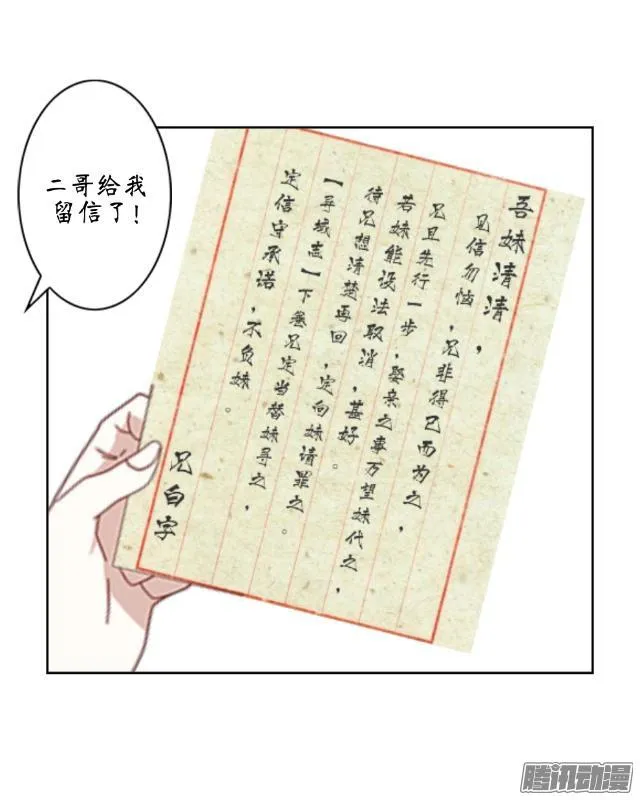 二哥给我
留信了！
吾妹清清，
见信勿恼，兄非得已而为之，
兄且先行一步，娶亲之事万望妹代之，
若妹能设法取消，甚好。
待兄想清楚再回，定向妹请罪之。
【寻域志】下卷兄定当替妹寻之，
定信守承诺，不负妹。
兄白字
腾讯动漫